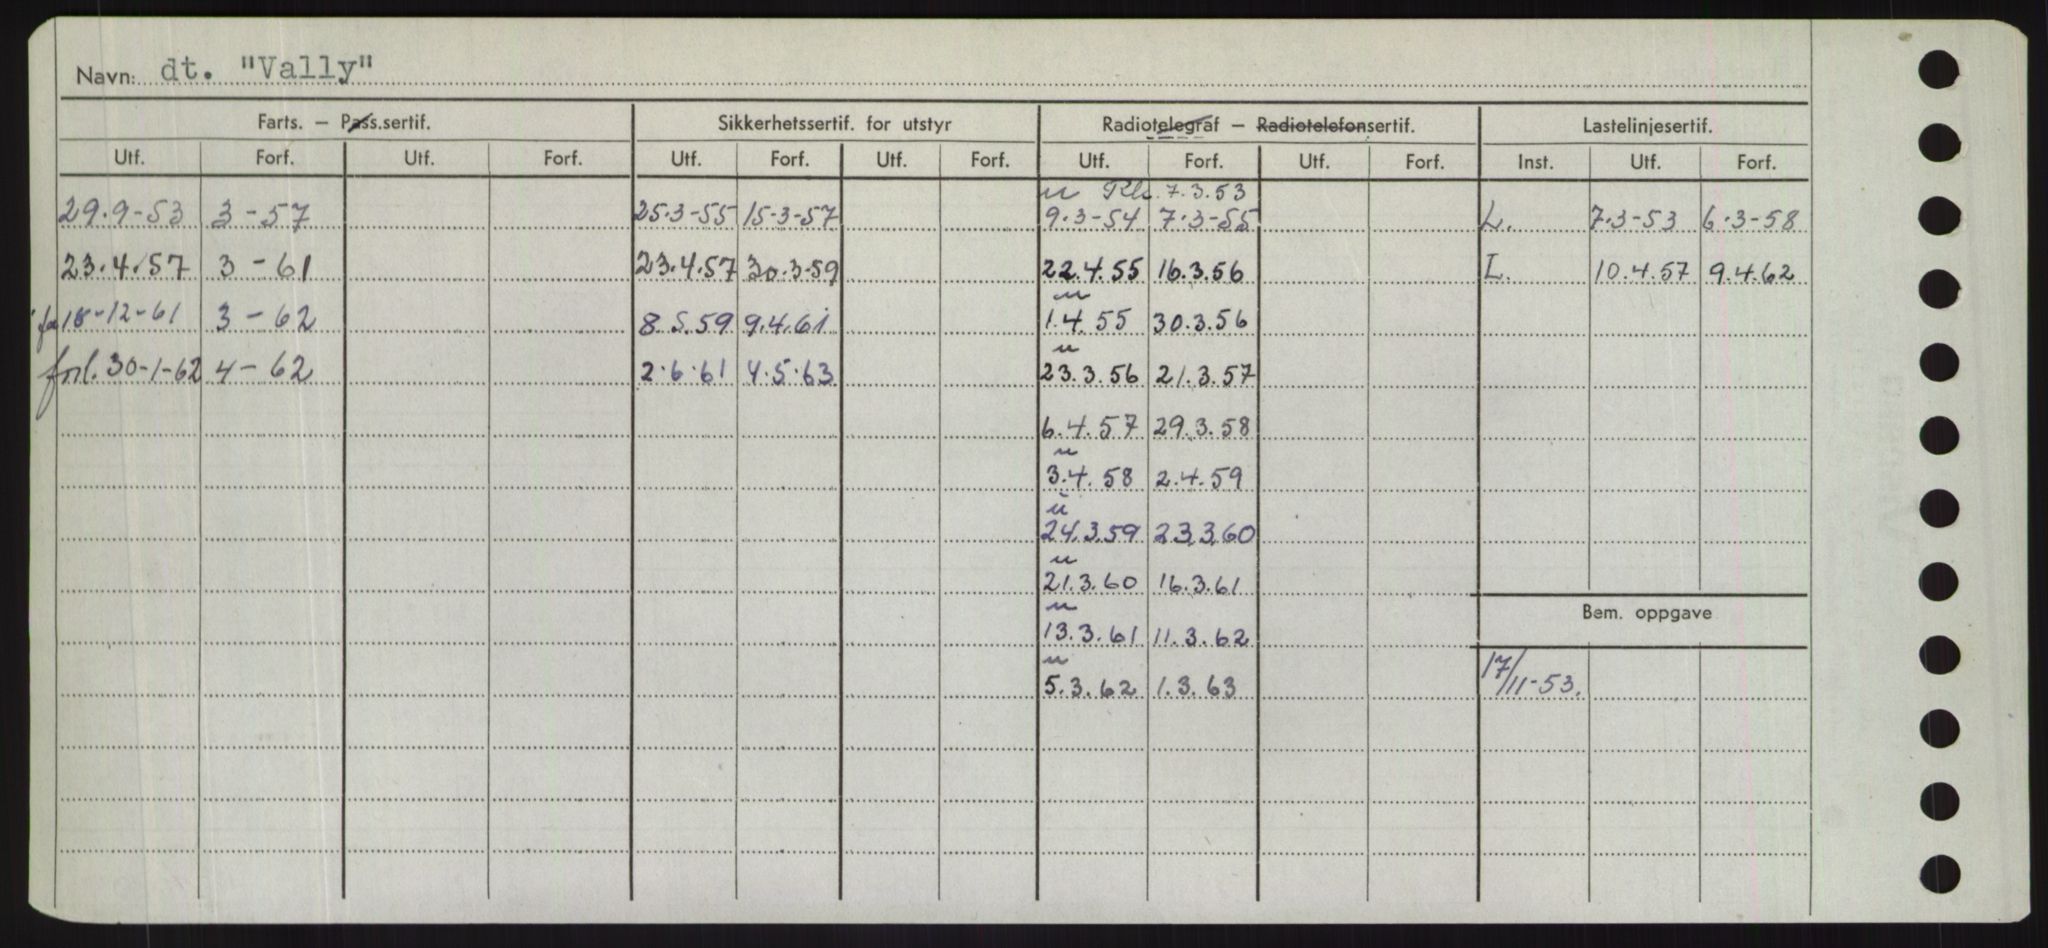 Navn: dt. "Vally"
Farts. — Pass.sertif. Sikkerhetssertif. for utstyr Radiotelegraf — Radiotelefonsertif. Lastelinjesertif.
Utf. Forf. Utf. Forf. Utf. Forf. Utf. Forf. Utf. Forf. Utf. Forf. Inst. Utf. Forf.
u 7.3.53
29.9-53 3-57 25.3-55 15-3-57 9.3-54 7.3-55 L. 7.3-53 6.3-58
23.4.57 3-61 23.4.57 30.3.59 22.4.55 16.3.56 L. 10.4.57 9.4.62
u
18-12-61 3-62 8.5.59 9.4.61 1.4.55 30.3.56
u
forl. 30-1-62 4-62 2.6.61 4.5.63 23.3.56 21.3.57
6.4.57 29.3.58
u
3.4.58 2.4.59
u
24.3.59 23.3.60
u
21.3.60 16.3.61
u
Bem. oppgave
13.3.61 11.3.62
u
5.3.62 1.3.63 17/11-53.